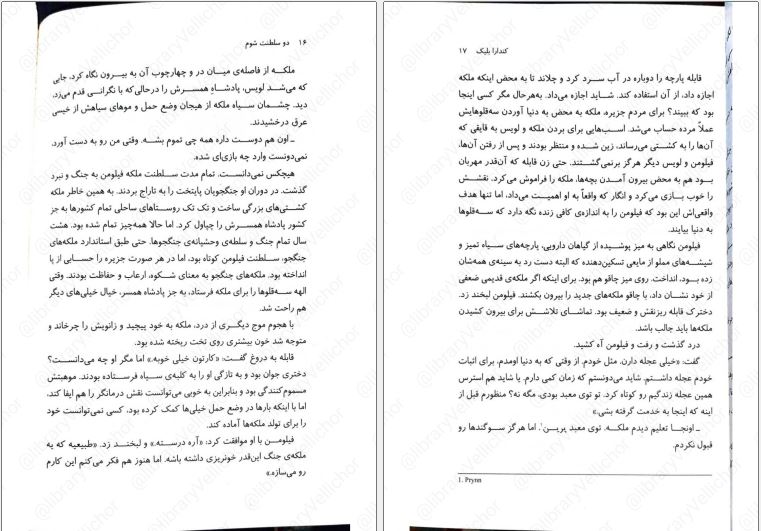 ۱۶ دو سلطنت شوم
ملکه از فاصله‌ی میان در و چهارچوب آن به بیرون نگاه کرد، جایی
که می‌شد لویس، پادشاهِ همسرش را درحالی‌که با نگرانی قدم می‌زد،
دید. چشمان سیاه ملکه از هیجان وضع حمل و موهای سیاهش از خیسی
عرق درخشیدند.
ـ اون هم دوست داره همه چی تموم بشه. وقتی من رو به دست آورد،
نمی‌دونست وارد چه بازی‌ای شده.
هیچکس نمی‌دانست. تمام مدت سلطنت ملکه فیلومن به جنگ و نبرد
گذشت. در دوران او جنگجویان پایتخت را به تاراج بردند. به همین خاطر ملکه
کشتی‌های بزرگی ساخت و تک تک روستاهای ساحلی تمام کشورها به جز
کشور پادشاه همسرش را چپاول کرد. اما حالا همه‌چیز تمام شده بود. هشت
سال تمام جنگ و سلطه‌ی وحشیانه‌ی جنگجوها. حتی طبق استاندارد ملکه‌های
جنگجو، سلطنت فیلومن کوتاه بود، اما در هر صورت جزیره را حسابی از پا
انداخته بود. ملکه‌های جنگجو به معنای شکوه، ارعاب و حفاظت بودند. وقتی
الهه سه‌قلوها را برای ملکه فرستاد، به جز پادشاه همسر، خیال خیلی‌های دیگر
هم راحت شد.
با هجوم موج دیگری از درد، ملکه به خود پیچید و زانویش را چرخاند و
متوجه شد خون بیشتری روی تخت ریخته شده بود.
قابله به دروغ گفت: «کارتون خیلی خوبه.» اما مگر او چه می‌دانست؟
دختری جوان بود و به تازگی او را به کلبه‌ی سیاه فرستاده بودند. موهبتش
مسموم‌کنندگی بود و بنابراین به خوبی می‌توانست نقش درمانگر را هم ایفا کند،
اما با اینکه بارها در وضع حمل خیلی‌ها کمک کرده بود، کسی نمی‌توانست خود
را برای تولد ملکه‌ها آماده کند.
فیلومن با او موافقت کرد: «آره درسته.» و لبخند زد. «طبیعیه که یه
ملکه‌ی جنگ این‌قدر خونریزی داشته باشه. اما هنوز هم فکر می‌کنم این کارم
رو می‌سازه.»
کندارا بلیک ۱۷
قابله پارچه را دوباره در آب سرد کرد و چلاند تا به محض اینکه ملکه
اجازه داد، از آن استفاده کند. شاید اجازه می‌داد. به‌هرحال مگر کسی اینجا
بود که ببیند؟ برای مردم جزیره، ملکه به محض به دنیا آوردن سه‌قلوهایش
عملاً مرده حساب می‌شد. اسب‌هایی برای بردن ملکه و لویس به قایقی که
آن‌ها را به کشتی می‌رساند، زین شده و منتظر بودند و پس از رفتن آن‌ها،
فیلومن و لویس دیگر هرگز برنمی‌گشتند. حتی زن قابله که آن‌قدر مهربان
بود هم به محض بیرون آمدن بچه‌ها، ملکه را فراموش می‌کرد. نقشش
را خوب بازی می‌کرد و انگار که واقعاً به او اهمیت می‌داد، اما تنها هدف
واقعی‌اش این بود که فیلومن را به اندازه‌ی کافی زنده نگه دارد که سه‌قلوها
به دنیا بیایند.
فیلومن نگاهی به میز پوشیده از گیاهان دارویی، پارچه‌های سیاه تمیز و
شیشه‌های مملو از مایعی تسکین‌دهنده که البته دست رد به سینه‌ی همه‌شان
زده بود، انداخت. روی میز چاقو هم بود. برای اینکه اگر ملکه‌ی قدیمی ضعفی
از خود نشان داد، با چاقو ملکه‌های جدید را بیرون بکشند. فیلومن لبخند زد.
دخترک قابله ریزنقش و ضعیف بود. تماشای تلاشش برای بیرون کشیدن
ملکه‌ها باید جالب باشد.
درد گذشت و رفت و فیلومن آه کشید.
گفت: «خیلی عجله دارن. مثل خودم. از وقتی که به دنیا اومدم، برای اثبات
خودم عجله داشتم. شاید می‌دونستم که زمان کمی دارم. یا شاید هم استرس
همین عجله زندگیم رو کوتاه کرد. تو توی معبد بودی، مگه نه؟ منظورم قبل از
اینه که اینجا به خدمت گرفته بشی.»
ـ اونجا تعلیم دیدم ملکه. توی معبد پرین¹. اما هرگز سوگندها رو
قبول نکردم.
1. Prynn
@libraryVellichor